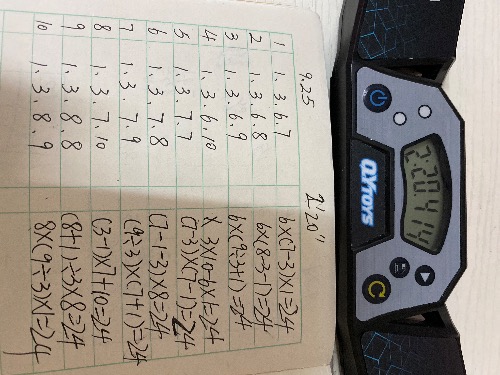 9.25 1'20"
1 1.3.6.7 6×(7-3)×1=24
2 1.3.6.8 6×(8-3-1)=24
3 1.3.6.9 6×(9÷3+1)=24
4 1.3.6.10 X. 3×10-6×1=24
5 1.3.7.7 (7-3)×(7-1)=24
6 1.3.7.8 (7-1-3)×8=24
7 1.3.7.9 (9÷3)×(7+1)=24
8 1.3.7.10 (3-1)×7+10=24
9 1.3.8.8 (8+1)÷3×8=24
10 1.3.8.9 8×(9÷3)×1=24
QY TOYS
2:20.414